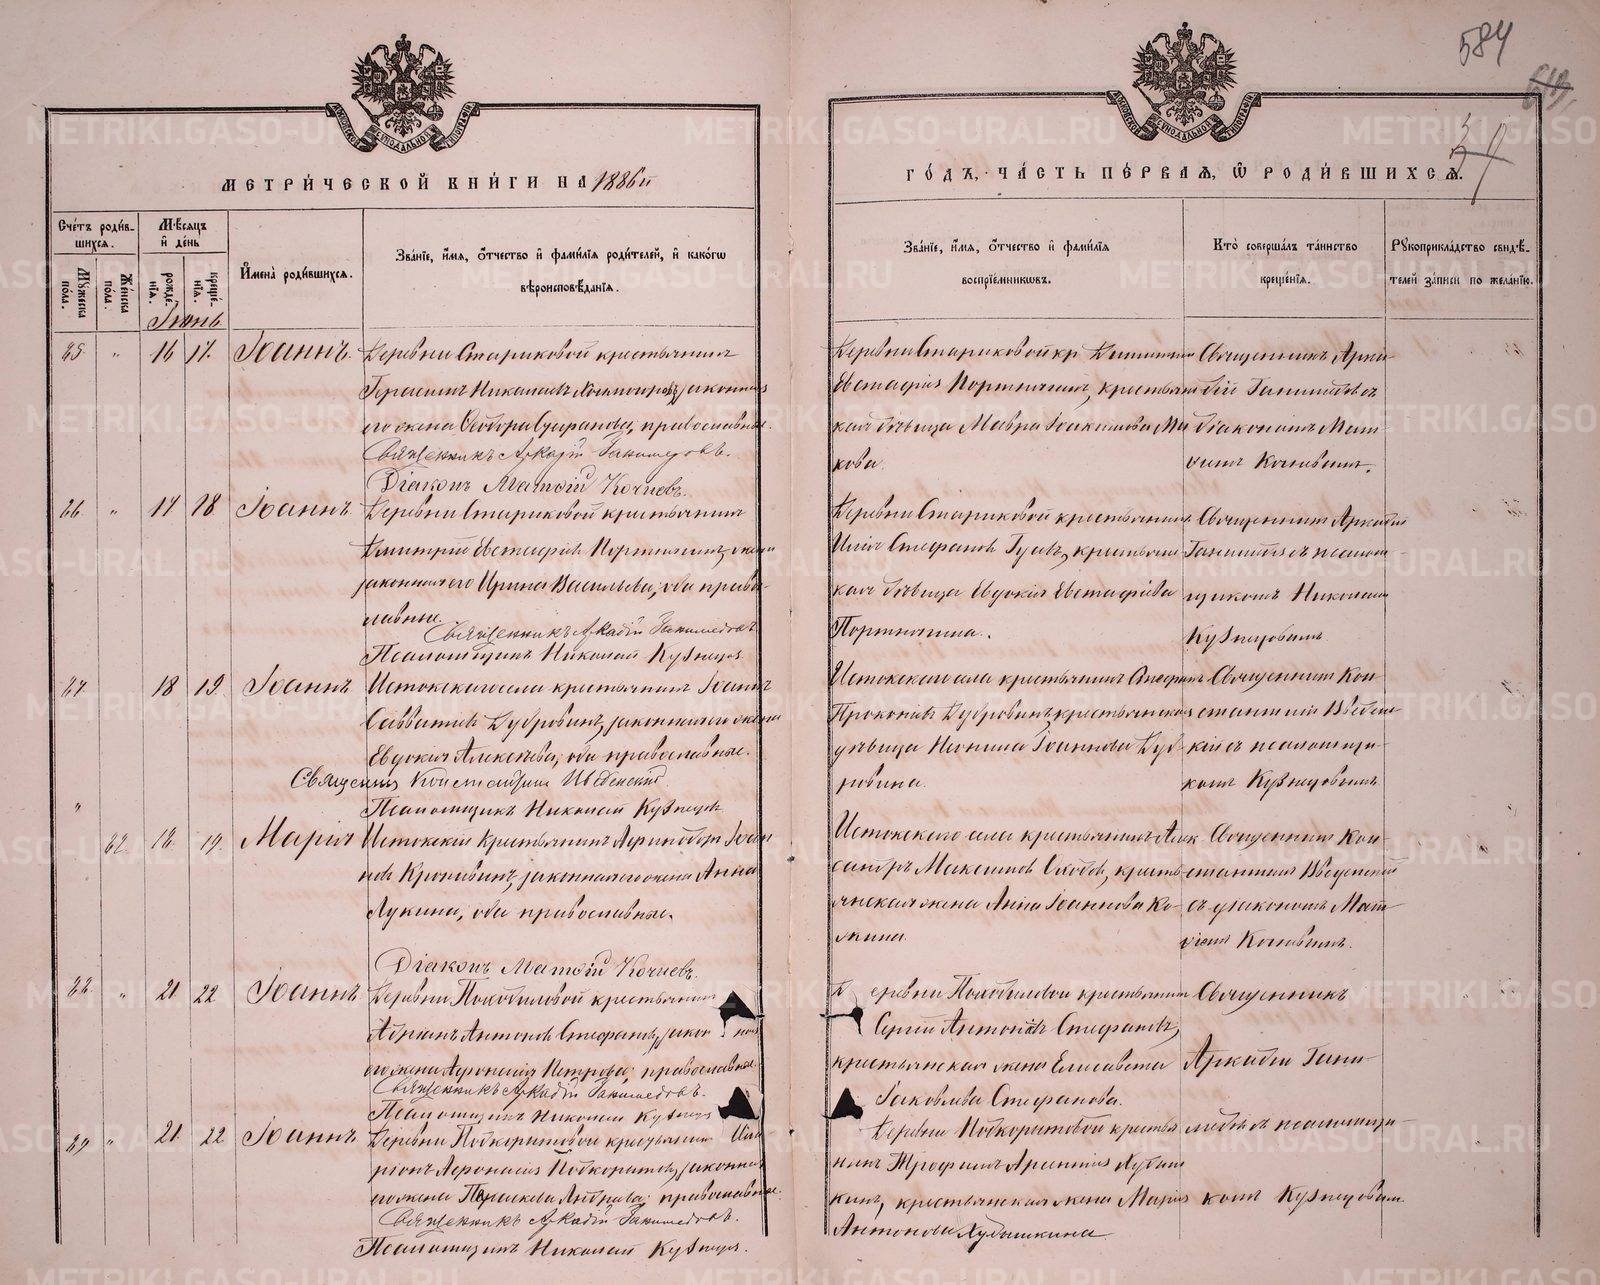 584
МЕТРИ́ЧЕСКОЙ КНИ́ГИ НА 1886й
ГО́ДЪ, ЧА́СТЬ ПЕ́РВАѦ, Ѽ РОДИ́ВШИХСѦ.
Сче́тъ роди́в-
шихсѧ.
Мѣ́сѧцъ
и҆ де́нь
Мꙋ́жеска по́ла.
Же́нска по́ла.
рожде́нїѧ.
креще́нїѧ.
Имена̀ роди́вшихсѧ.
Зва́нїе, и҆́мѧ, ѻ҆́тчество и҆ фами́лїѧ роди́телей, и҆ како́гѡ
вѣроисповѣ́данїѧ.
Зва́нїе, и҆́мѧ, ѻ҆́тчество и҆ фами́лїѧ
воспрїе́мниковъ.
Кто̀ соверша́лъ та́инство
креще́нїѧ.
Рꙋкоприкла́дство свидѣ́-
телей за́писи по жела́нїю.
Іюнь
25 " 16 17. Іоаннъ.
Деревни Стариковой крестьянинъ
Герасимъ Николаевъ законная
его жена Ѳеодора православные.
Священникъ Аркадій Ганимедовъ.
Діаконъ Матѳій Кочневъ.
Деревни Стариковой кр. Димитрій
Евстафіевъ Портнягинъ, крестьян
ская дѣвица Мавра Іоакимова
кова.
Священникъ Арка
дій Ганимедовъ съ
діакономъ Мат-
ѳіемъ Кочневымъ.
26 " 17 18 Іоаннъ.
Деревни Стариковой крестьянинъ
Димитрій Евстафіевъ Портнягинъ, жена
законная его Ирина Васильева, оба право-
славные.
Священникъ Аркадій Ганимедовъ.
Псаломщикъ Николай Кузнецовъ
Деревни Стариковой крестьянинъ
Илія Стефановъ Гусевъ, крестьян
ская дѣвица Евдокія Евстафіева
Портнягина.
Священникъ Аркадій
Ганимедовъ съ псалом
щикомъ Николаемъ
Кузнецовымъ
27 18 19. Іоаннъ
Истокскаго села крестьянинъ Іоаннъ
Савватіевъ Дубровинъ, законная его жена
Евдокія Алексѣева, оба православные.
Священникъ Константинъ Введенскій
Псаломщикъ Николай Кузнецовъ
Истокскаго села крестьянинъ Стефанъ
Прокопіевъ Дубровинъ, крестьянская
дѣвица Неонила Іоаннова Дуб-
ровина.
Священникъ Кон
стантинъ Введенс
кій съ псаломщи-
комъ Кузнецовымъ
" 22. 16. 19. Марія
Истокскій крестьянинъ Іоан
новъ законная его жена Анна
Лукина, оба православные.
Діаконъ Матѳій Кочневъ.
Истокскаго села крестьянинъ Алек
сандръ Максимовъ кресть-
янская жена Анна Іоаннова Ко-
жина.
Священникъ Кон-
стантинъ Введенскій
съ діакономъ Мат
ѳіемъ Кочневымъ.
28. " 21 22 Іоаннъ
Деревни крестьянинъ
Адріанъ Антоновъ Стефановъ, закон ная
его жена Афонасія Петрова, православные.
Священникъ Аркадій Ганимедовъ.
Псаломщикъ Николай Кузнецовъ
Деревни крестьянинъ
Сергій Антоновъ Стефановъ,
крестьянская жена Елисавета
Іаковлева Стефанова.
Священникъ
Аркадій Гани-
29 " 21 22 Іоаннъ
Деревни Подкорытовой крестьянинъ Ила
ріонъ Афонасіевъ Подкорытовъ, законная
его жена Параскева Андреева; православные.
Священникъ Аркадій Ганимедовъ.
Псаломщикъ Николай Кузнецовъ.
Деревни Подкорытовой крестья
нинъ Трофимъ Арсеніевъ Худыш
кинъ, крестьянская жена Марія
Антонова Худышкина
медовъ съ псаломщи-
комъ Кузнецовым
METRIKI.GASO-URAL.RU